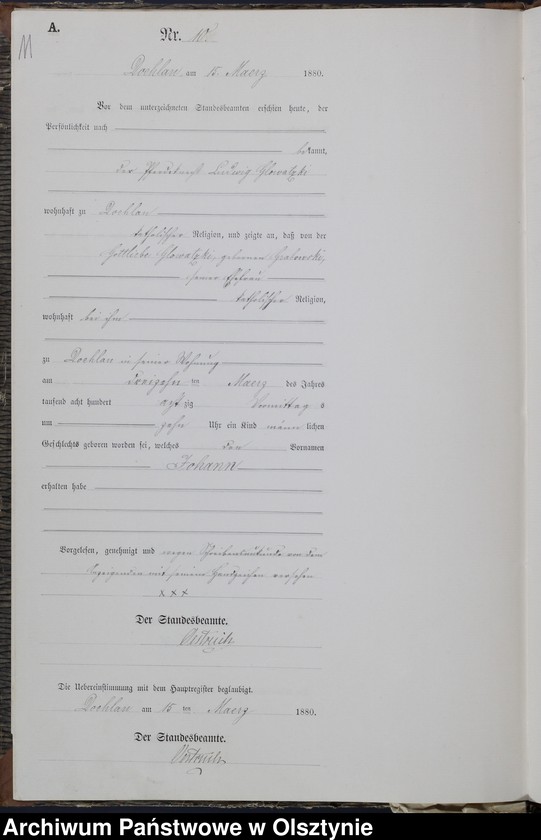 A.
11
Nr. 10
Dochlau am 15. Maerz 1880.
Vor dem unterzeichneten Standesbeamten erschien heute, der
Persönlichkeit nach
bekannt,
der Pferdeknecht Ludwig Glowatzki
wohnhaft zu Dochlau
katholischer Religion, und zeigte an, daß von der
Gottliebe Glowatzki, geborenen
seiner Ehefrau
katholischer Religion,
wohnhaft bei ihm
zu Dochlau in seiner Wohnung
am Dreizehn ten Maerz des Jahres
tausend acht hundert achtzig Vormittags
um zehn Uhr ein Kind männlichen
Geschlechts geboren worden sei, welches den Vornamen
Johann
erhalten habe
Vorgelesen, genehmigt und wegen Schreibensunkunde von dem
Anzeigenden mit seinem Handzeichen versehen
x x x
Der Standesbeamte.
Oestreich
Die Uebereinstimmung mit dem Hauptregister beglaubigt.
Dochlau am 15 ten Maerz 1880.
Der Standesbeamte.
Oestreich
Archiwum Państwowe w Olsztynie